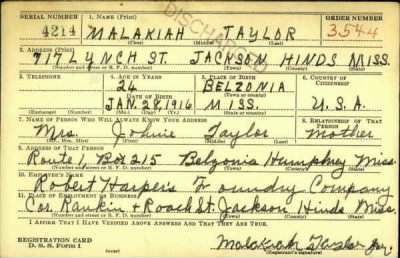 SERIAL NUMBER 1. NAME (Print) ORDER NUMBER
4214 MALAKIAH TAYLOR 3544
(First) (Middle) (Last)
DISCHARGED
2. ADDRESS (Print)
717 LYNCH ST. JACKSON HINDS MISS.
(Number and street or R. F. D. number) (Town) (County) (State)
3. TELEPHONE 4. AGE IN YEARS 5. PLACE OF BIRTH 6. COUNTRY OF CITIZENSHIP
24 BELZONIA
DATE OF BIRTH (Town or county)
JAN. 28, 1916 MISS. U.S.A.
(Exchange) (Number) (Mo.) (Day) (Yr.) (State or country)
7. NAME OF PERSON WHO WILL ALWAYS KNOW YOUR ADDRESS 8. RELATIONSHIP OF THAT PERSON
Mrs. Johnie Taylor Mother
(Mr., Mrs., Miss) (First) (Middle) (Last)
9. ADDRESS OF THAT PERSON
Route 1, Box 215 Belzonia Humphrey Miss.
(Number and street or R. F. D. number) (Town) (County) (State)
10. EMPLOYER'S NAME
Robert Harper's Foundry Company
11. PLACE OF EMPLOYMENT OR BUSINESS
Cor. Rankin + Roach St. Jackson Hinds Miss.
(Number and street or R. F. D. number) (Town) (County) (State)
I AFFIRM THAT I HAVE VERIFIED ABOVE ANSWERS AND THAT THEY ARE TRUE.
REGISTRATION CARD
D. S. S. Form 1 Malakiah Taylor Jr.
(Registrant's signature)